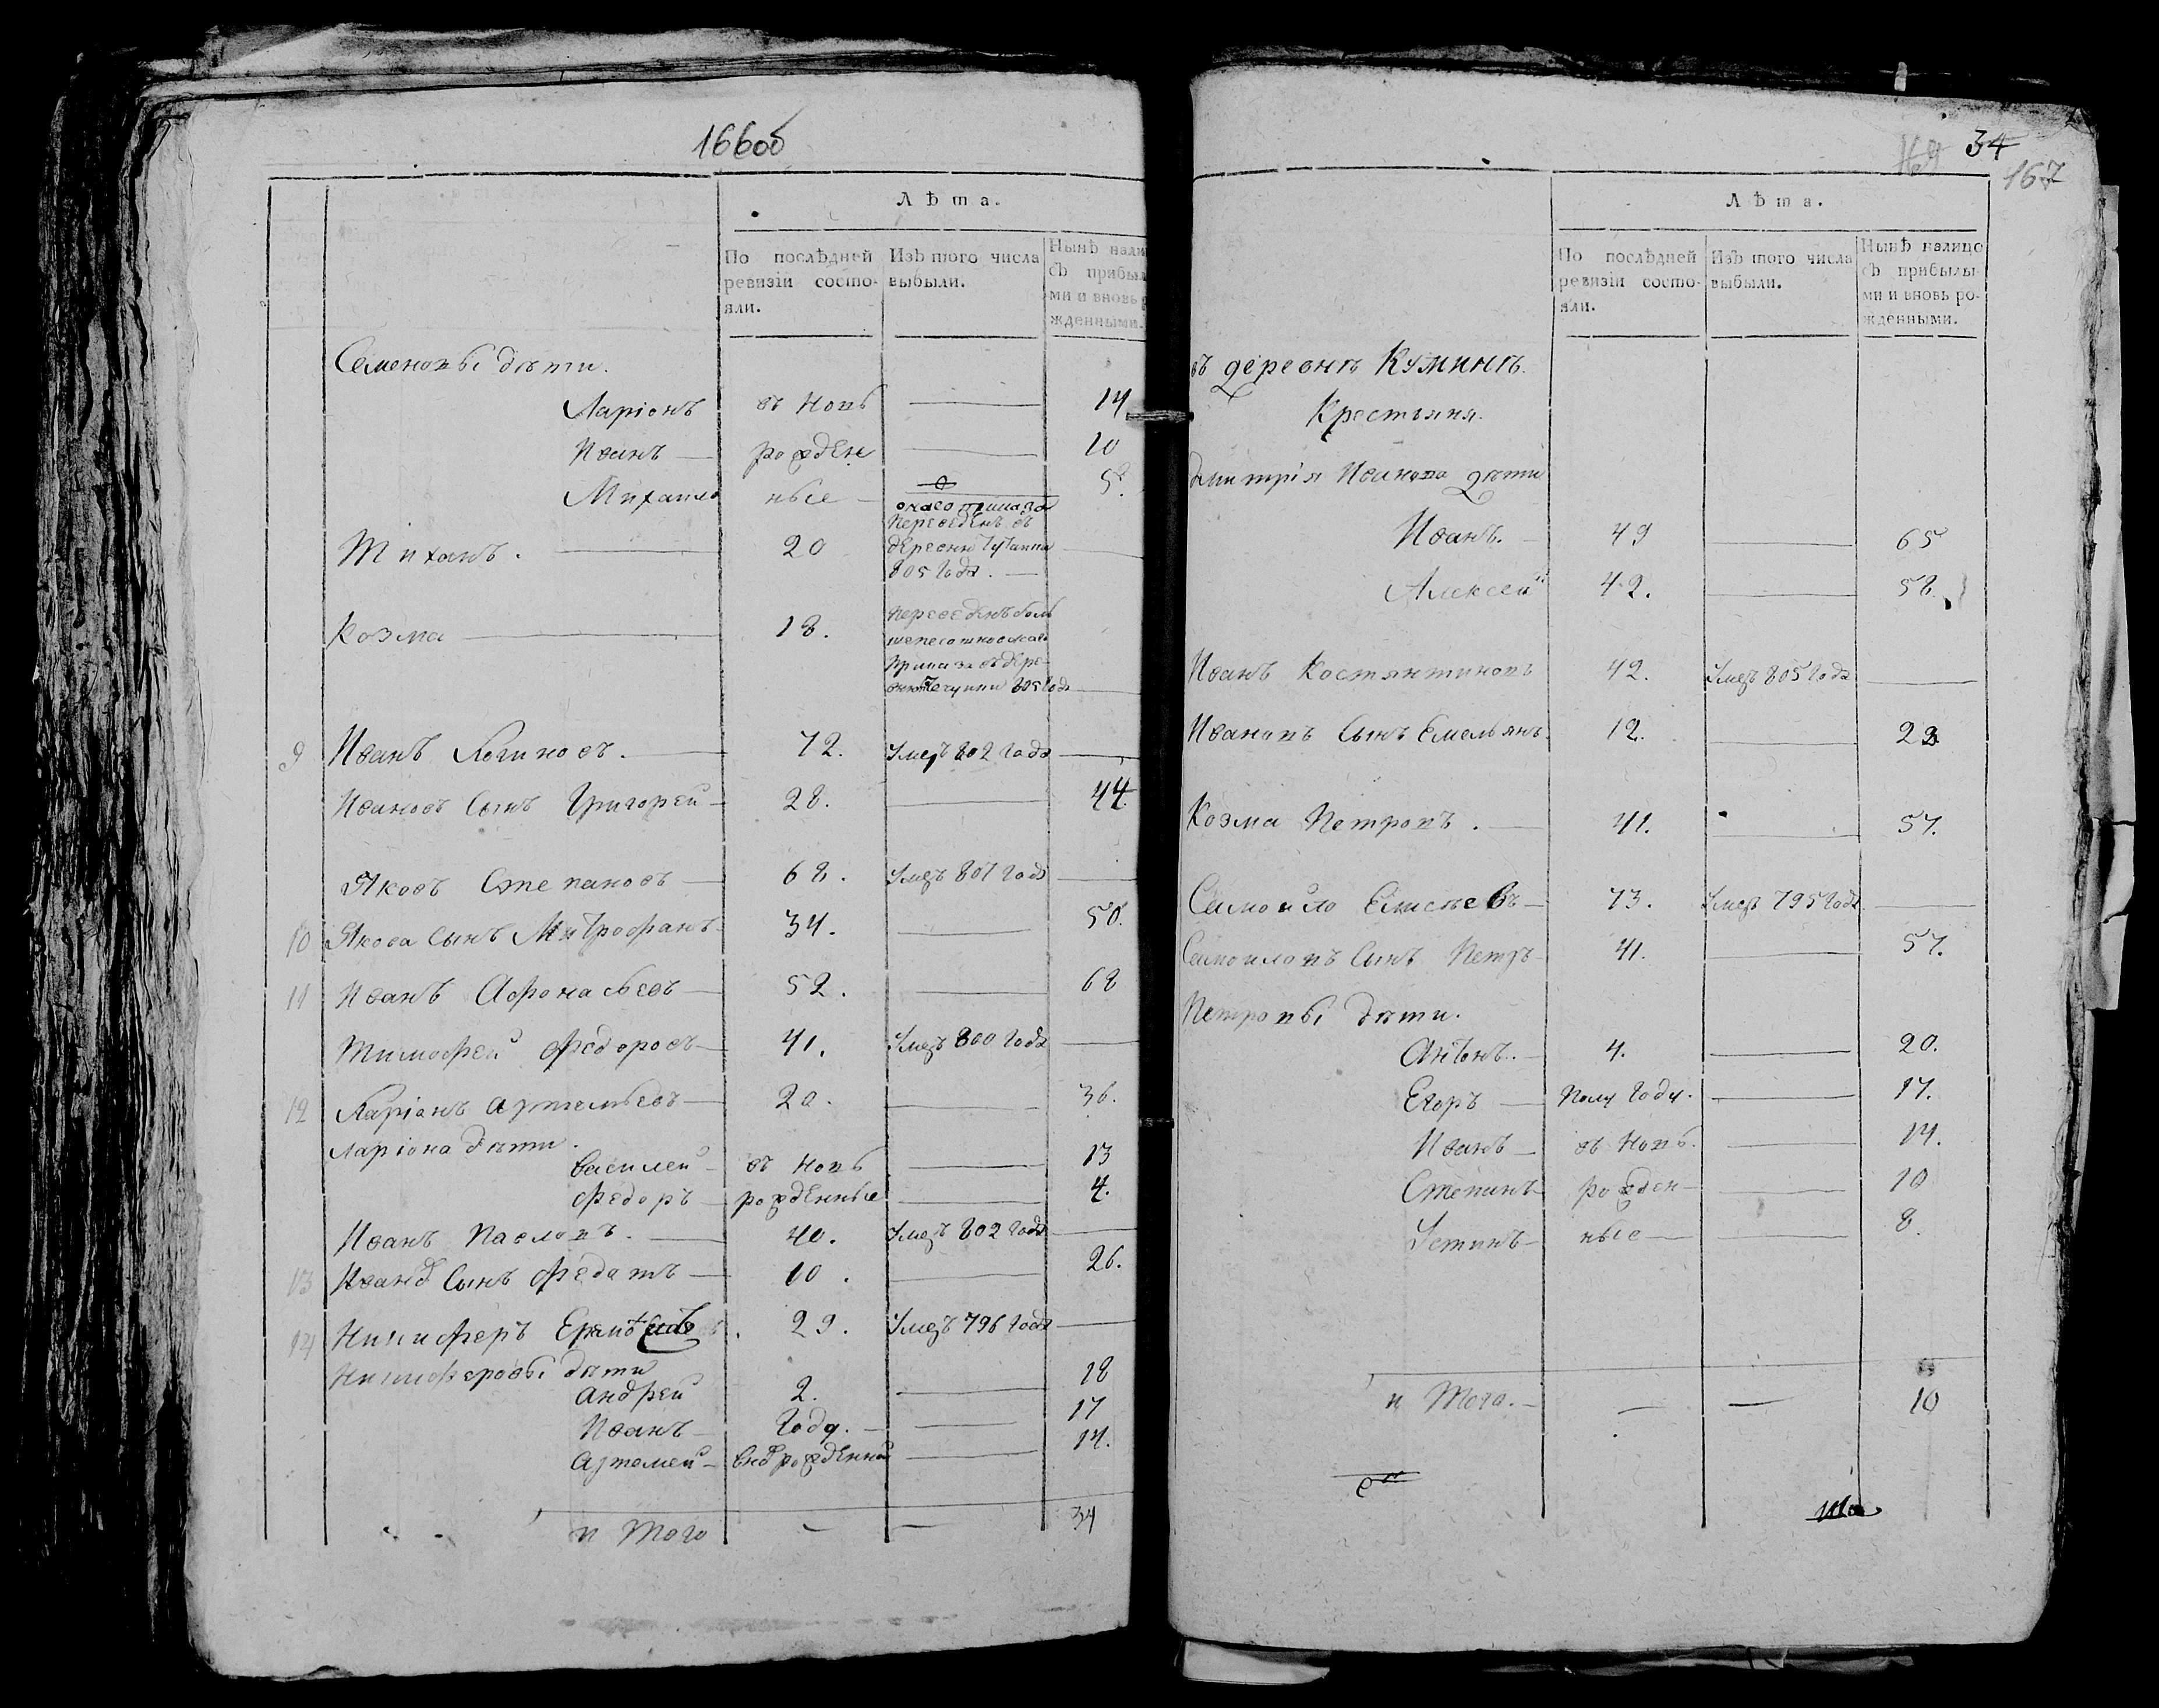 166об
Лѣта.
По послѣдней ревизіи состо- яли.
Изъ того числа выбыли.
Нынѣ нали
съ прибыл
ми и вновь р
жденными.
Семеновы дѣти.
Ларіонъ въ новь — 14
Иванъ — рожден — 10
Михаило ные — 5.
Тиханъ. — 20 переведенъ въ
деревню
805 года. —
Козма — 18. переведенъ
805 года —
9 Иванъ Логиновъ. — 72. умеръ 802 года —
Ивановъ сынъ Григорей — 28. — 44.
Яковъ Степановъ — 68. умеръ 807 года —
10 Якова сынъ Митрофанъ 34. — 50.
11 Иванъ Афонасьевъ — 52. — 68
Тимофей Федоровъ — 41. умеръ 800 года —
12 Ларіонъ Артемьевъ — 20. — 36.
Ларіона дѣти.
Василей — въ новь — 13
Федоръ — рожденные — 4.
Иванъ Павловъ. — 40. умеръ 802 года —
13 Иванъ сынъ Федатъ — 10. — 26.
14 Никиферъ . 29. умеръ 796 года —
Никиферовы дѣти
Андрей 2. — 18
Иванъ — году. — 17
Артемей — внь рожденный — 14.
и того — — 34
169 34
167
Лѣта.
По послѣдней ревизіи состо- яли.
Изъ того числа выбыли.
Нынѣ налицо
съ прибылы-
ми и вновь ро-
жденными.
въ деревнѣ Куминѣ.
Крестьяня.
Дмитрія Иванова дѣти
Иванъ. — 49 — 65
Алексей 42. — 58.
Иванъ Костянтиновъ 42. умеръ 805 года —
Ивановъ сынъ Емельянъ. 12. — 28
Козма Петровъ. — 41. — 57.
Самоило Елисѣевъ — 73. умеръ 795 года —
Самоиловъ сынъ Петръ — 41. — 57.
Петровы дѣти.
Антонъ. — 4. — 20.
Егоръ — полу году. — 17.
Иванъ — въ новь. — 14.
Степанъ — рожден — 10
Устинъ — ные — 8.
и того. — — — 10